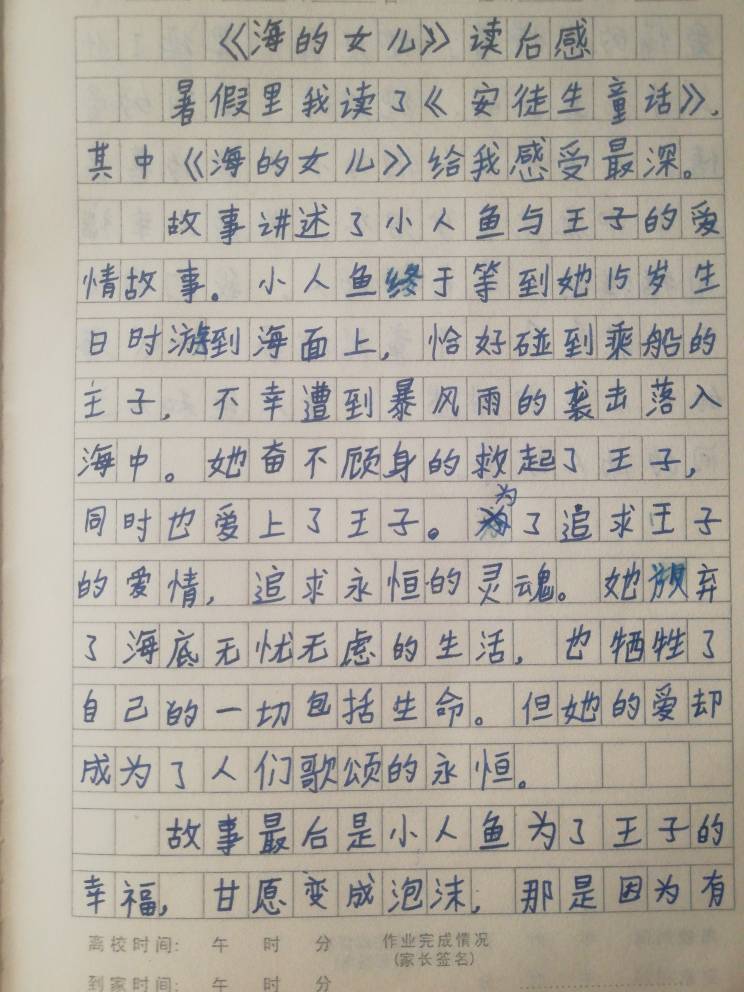 《海的女儿》读后感
暑假里我读了《安徒生童话》，
其中《海的女儿》给我感受最深。
故事讲述了小人鱼与王子的爱
情故事。小人鱼终于等到她15岁生
日时游到海面上，恰好碰到乘船的
王子，不幸遭到暴风雨的袭击落入
海中。她奋不顾身的救起了王子，
同时也爱上了王子。为了追求王子
的爱情，追求永恒的灵魂。她放弃
了海底无忧无虑的生活，也牺牲了
自己的一切包括生命。但她的爱却
成为了人们歌颂的永恒。
故事最后是小人鱼为了王子的
幸福，甘愿变成泡沫，那是因为有
离校时间： 午 时 分 作业完成情况
(家长签名)
到家时间： 午 时 分